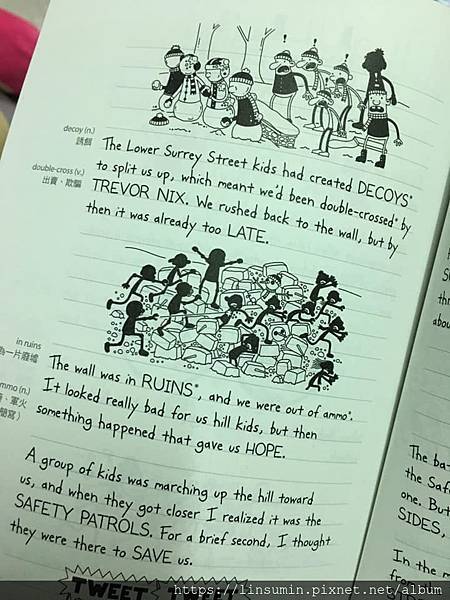 decoy (n.)
誘餌
The Lower Surrey Street kids had created DECOYS*
to split us up, which meant we'd been double-crossed* by
double-cross (v.)
出賣、欺騙
TREVOR NIX. We rushed back to the wall, but by
then it was already too LATE.
in ruins
為一片廢墟
The wall was in RUINS*, and we were out of ammo*.
ammo (n.)
軍火
It looked really bad for us hill kids, but then
something happened that gave us HOPE.
A group of kids was marching up the hill toward
us, and when they got closer I realized it was the
SAFETY PATROLS. For a brief second, I thought
they were there to SAVE us.
TWEET
The ba-
the Saf
one. But
SIDES,
In the m
https://linsumin.pixnet.net/album